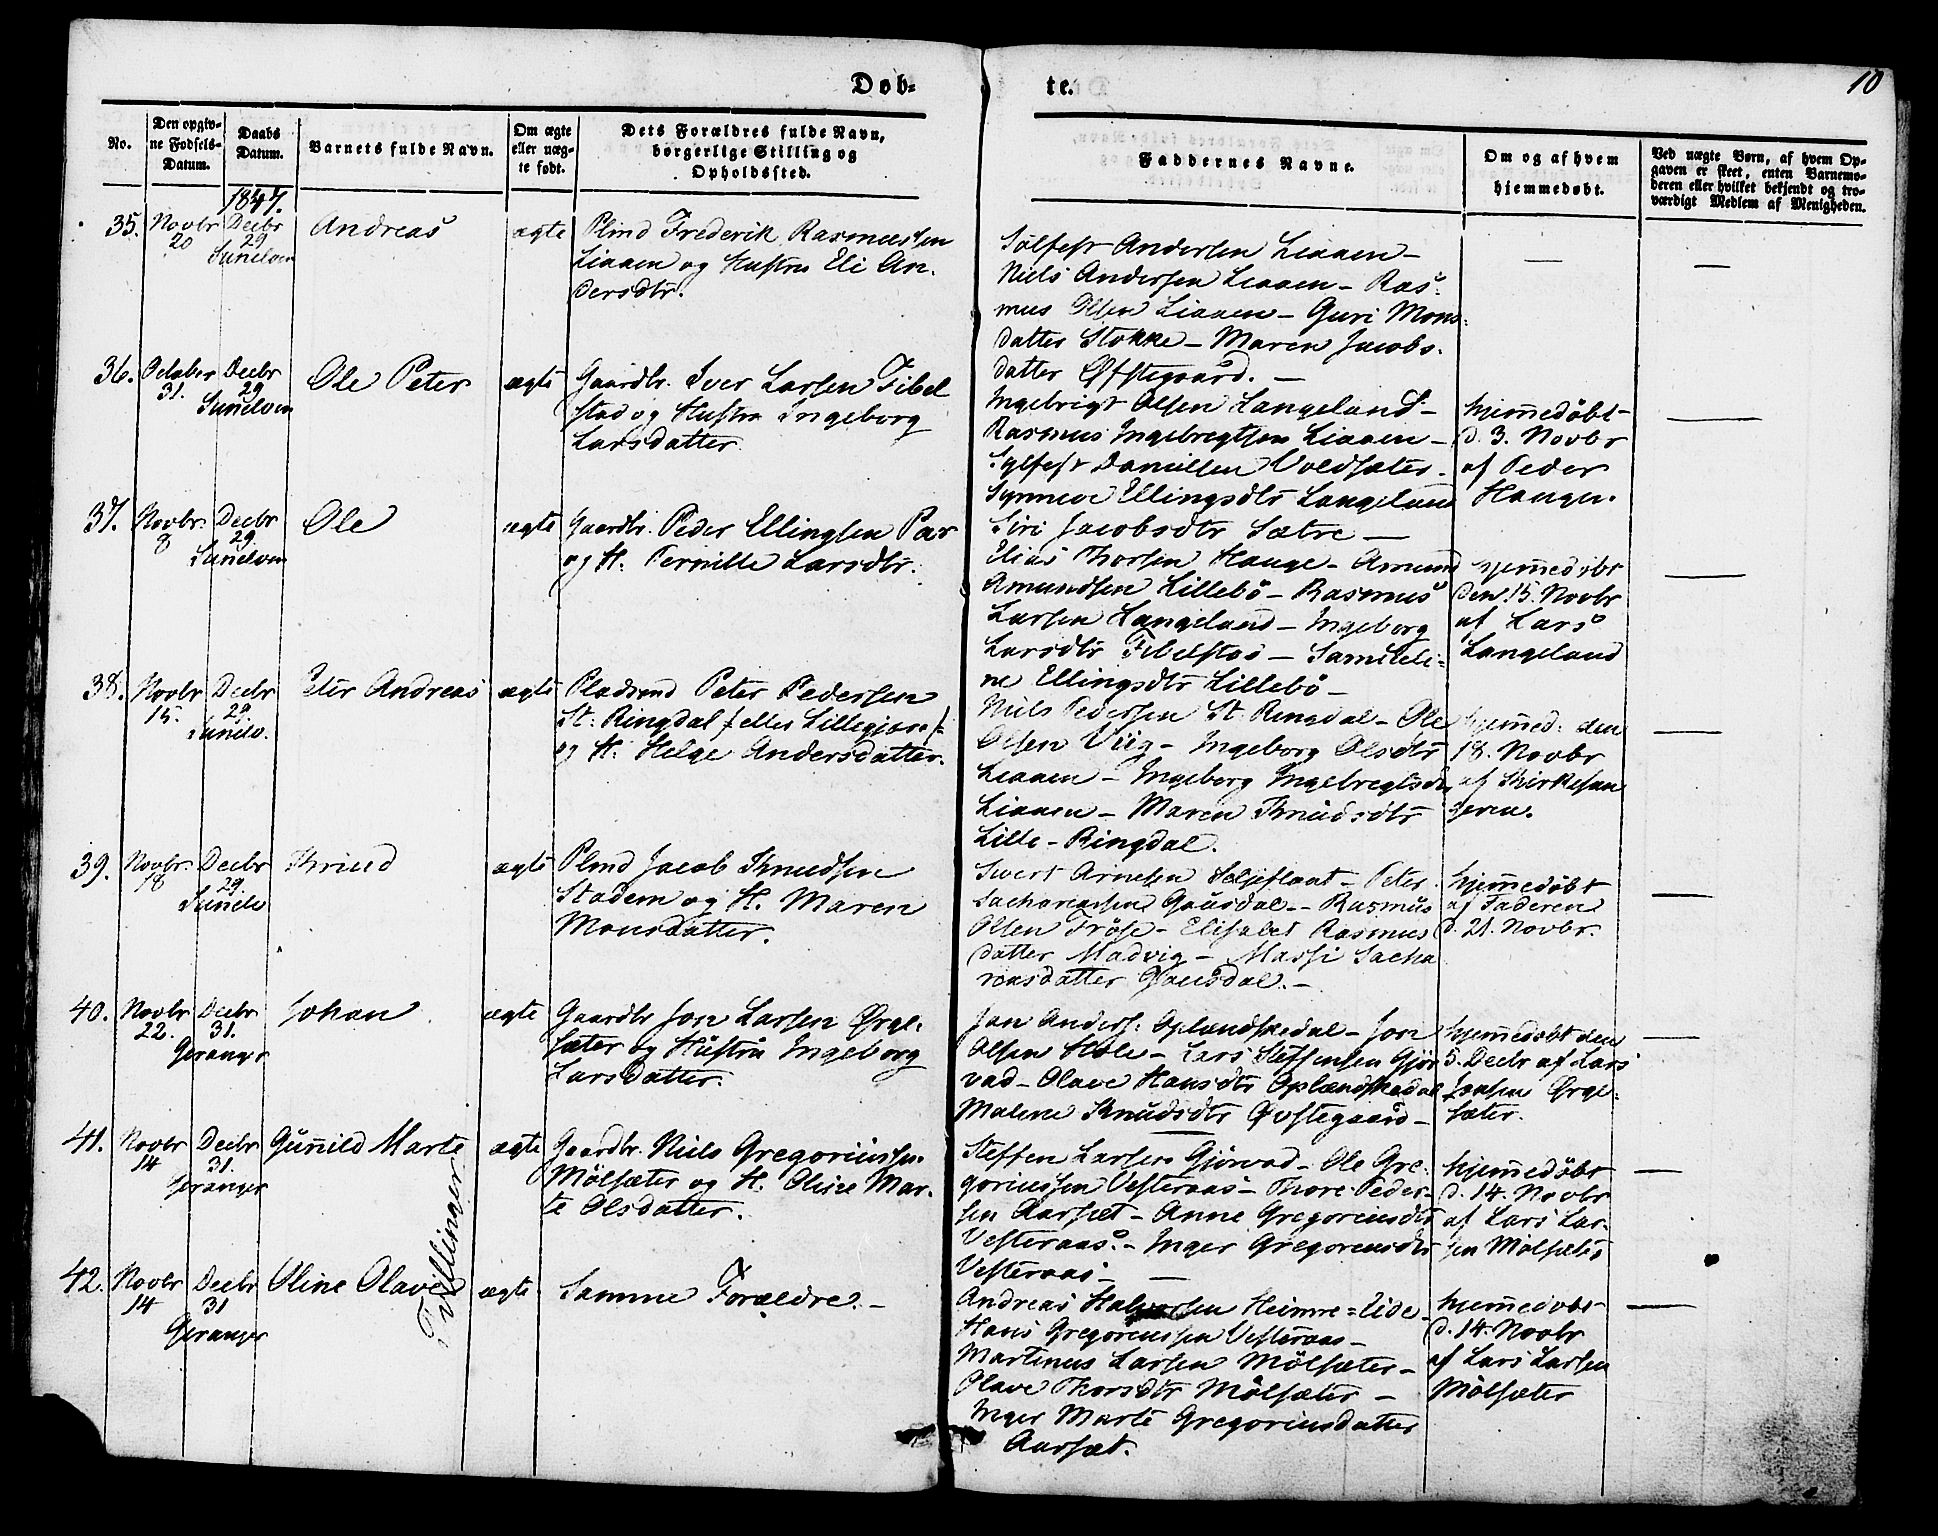 Døb-
te.
10
No.
Den opgiv-
ne Fødsels-
Datum.
Daabs
Datum.
Barnets fulde Navn.
Om ægte
eller uæg-
te født.
Dets Forældres fulde Navn,
borgerlige Stilling og
Opholdssted.
Faddernes Navne.
Om og af hvem
hjemmedøbt.
Ved uægte Børn, af hvem Op-
gaven er skeet, enten Barnemo-
deren eller hvilket bekjendt og tro-
værdigt Medlem af Menigheden.
1847.
35.
Novbr
20
Decbr
29
Sunelven
Andreas
ægte
Plmd Frederik Rasmussen
Liaaen og Hustru Eli An-
dersdtr.
Sølfest Andersen Liaaen -
Niels Andersen Liaaen - Ras-
mus Olsen Liaaen - Guri Mons-
datter Stokke - Maren Jacobs-
datter Øfstegaard. -
36.
October
31.
Decbr
29
Sunelven
Ole Peter
ægte
Gaardbr. Iver Larsen Fibel
stad og Hustru Ingeborg
Larsdatter.
Ingebrigt Olsen Langeland -
Rasmus Ingebregtsen Liaaen -
Sylfest Danielsen Voldsæter -
Synneve Ellingsdtr Langeland
Siri Jacobsdtr Sætre -
hjem̄edøbt
d. 3. Novbr
af Peder
Haugen.
37.
Novbr.
8
Decbr
29.
Sunelven
Ole
ægte
Gaardbr. Peder Ellingsen
og H. Pernille Larsdtr.
Elias Thorsen Hauge - Amund
Amundsen Lillebö - Rasmus
Larsen Langeland - Ingeborg
Larsdtr Fibelstad - Samueli-
ne Ellingsdtr Lillebö -
hjem̄edöbt
den 15. Novbr
af Lars
Langeland
38.
Novbr
15.
Decbr
29.
Sunelv.
Peter Andreas
ægte
Pladsmd Peter Pedersen
St. Ringdal /: eller Lillegjære :/
og H. Helge Andersdatter.
Niels Pedersen St. Ringdal - Ole
Olsen Viig - Ingeborg Olsdtr
Liaaen - Ingeborg Ingebregtsdtr
Liaaen - Maren Knudsdtr
Lille-Ringdal.
hjem̄ed. den
18. Novbr
af Kirkesan
geren.
39.
Novbr.
18
Decbr
29.
Sunelv
Knud
ægte
Plmd Jacob Knudsen
Stadem og H. Maren
Monsdatter.
Sivert Arnesen Seljeflaat - Peter
Sachariassen Gausdal - Rasmus
Olsen Fröse - Elisabet Rasmus
datter Madvig - Massi Sacha
riasdatter Gausdal. -
hjem̄edøbt
af Faderen
d. 21. Novbr.
40.
Novbr
22.
Decbr
31.
Geranger
Johan
ægte
Gaardbr Jon Larsen Ørge-
sæter og Hustru Ingeborg
Larsdatter.
Jon Anders. Oplændskedal - Jon
Olsen Hole - Lars Steffensen Gjör
vad - Olave Hansdtr Oplændskedal
Malene Knudsdtr Øvstegaard -
hjem̄edøbt den
5. Decbr af Lars
Jonsen Ørge-
sæter.
41.
Novbr
14
Decbr
31.
Geranger
Gun̄ild Marte
Tvillinger
ægte
Gaardbr. Niels Gregoriussen
Mölsæter og H. Oline Mar-
te Olsdatter.
Steffen Larsen Gjörvad - Ole Gre-
goriussen Vesteraas - Thore Peder-
sen Aarset - Anne Gregoriusdtr
Vesteraas. - Inger Gregoriusdtr
Vesteraas -
hjem̄edöbt
d. 14. Novbr
af Lars Lar-
sen Mölsæter
42.
Novbr
14
Decbr
31
Geranger
Oline Olave
ægte
Samme Forældre. -
Andreas Halvorsen Heimre=Eide -
Hans Gregoriussen Vesteraas -
Martinus Larsen Mölsæter -
Olave Thorsdtr Mölsæter -
Inger Marte Gregoriusdatter
Aarsæt.
hjem̄edöbt
d. 14. Novbr
af Lars Larsen
Mölsæter